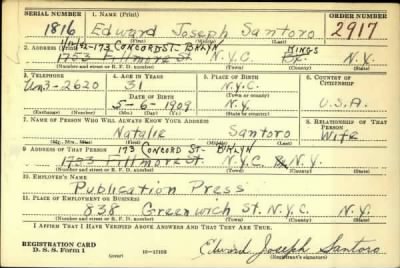 SERIAL NUMBER 1. NAME (Print) ORDER NUMBER
1816 Edward Joseph Santoro 2917
(First) (Middle) (Last)
173 CONCORD ST. BKLYN KINGS
2. ADDRESS (Print)
1753 Fillmore St N.Y.C. Bx. N.Y.
(Number and street or R. F. D. number) (Town) (County) (State)
3. TELEPHONE 4. AGE IN YEARS 5. PLACE OF BIRTH 6. COUNTRY OF CITIZENSHIP
Un3-2620 31 N.Y.C.
DATE OF BIRTH (Town or county)
5-6-1909 N.Y. U.S.A.
(Exchange) (No.) (Mo.) (Day) (Yr.) (State or country)
7. NAME OF PERSON WHO WILL ALWAYS KNOW YOUR ADDRESS 8. RELATIONSHIP OF THAT PERSON
Natalie Santoro Wife
(Mr., Mrs., Miss) (First) (Middle) (Last)
9. ADDRESS OF THAT PERSON 173 CONCORD ST- BKLYN
1753 Fillmore St. N.Y.C. N.Y.
(Number and street or R. F. D. number) (Town) (County) (State)
10. EMPLOYER'S NAME
Publication Press
11. PLACE OF EMPLOYMENT OR BUSINESS
838 Greenwich St. N.Y.C. N.Y.
(Number and street or R. F. D. number) (Town) (County) (State)
I AFFIRM THAT I HAVE VERIFIED ABOVE ANSWERS AND THAT THEY ARE TRUE.
REGISTRATION CARD
D. S. S. Form 1 (over) Edward Joseph Santoro
(Registrant's signature)